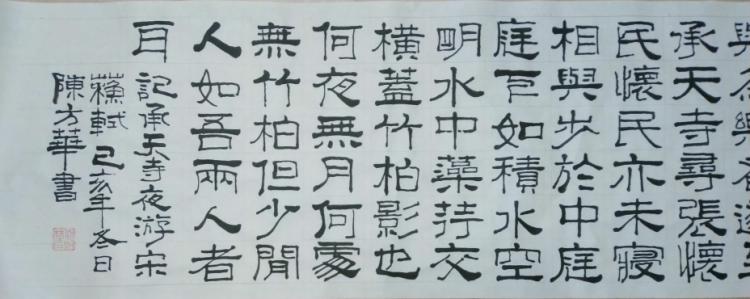 與為樂者遂至
承天寺尋張懷
民懷民亦未寢
相與步於中庭
庭下如積水空
明水中藻荇交
橫蓋竹柏影也
何夜無月何處
無竹柏但少閒
人如吾兩人者
耳 記承天寺夜游宋
蘇軾 己亥年冬日
陳方華書